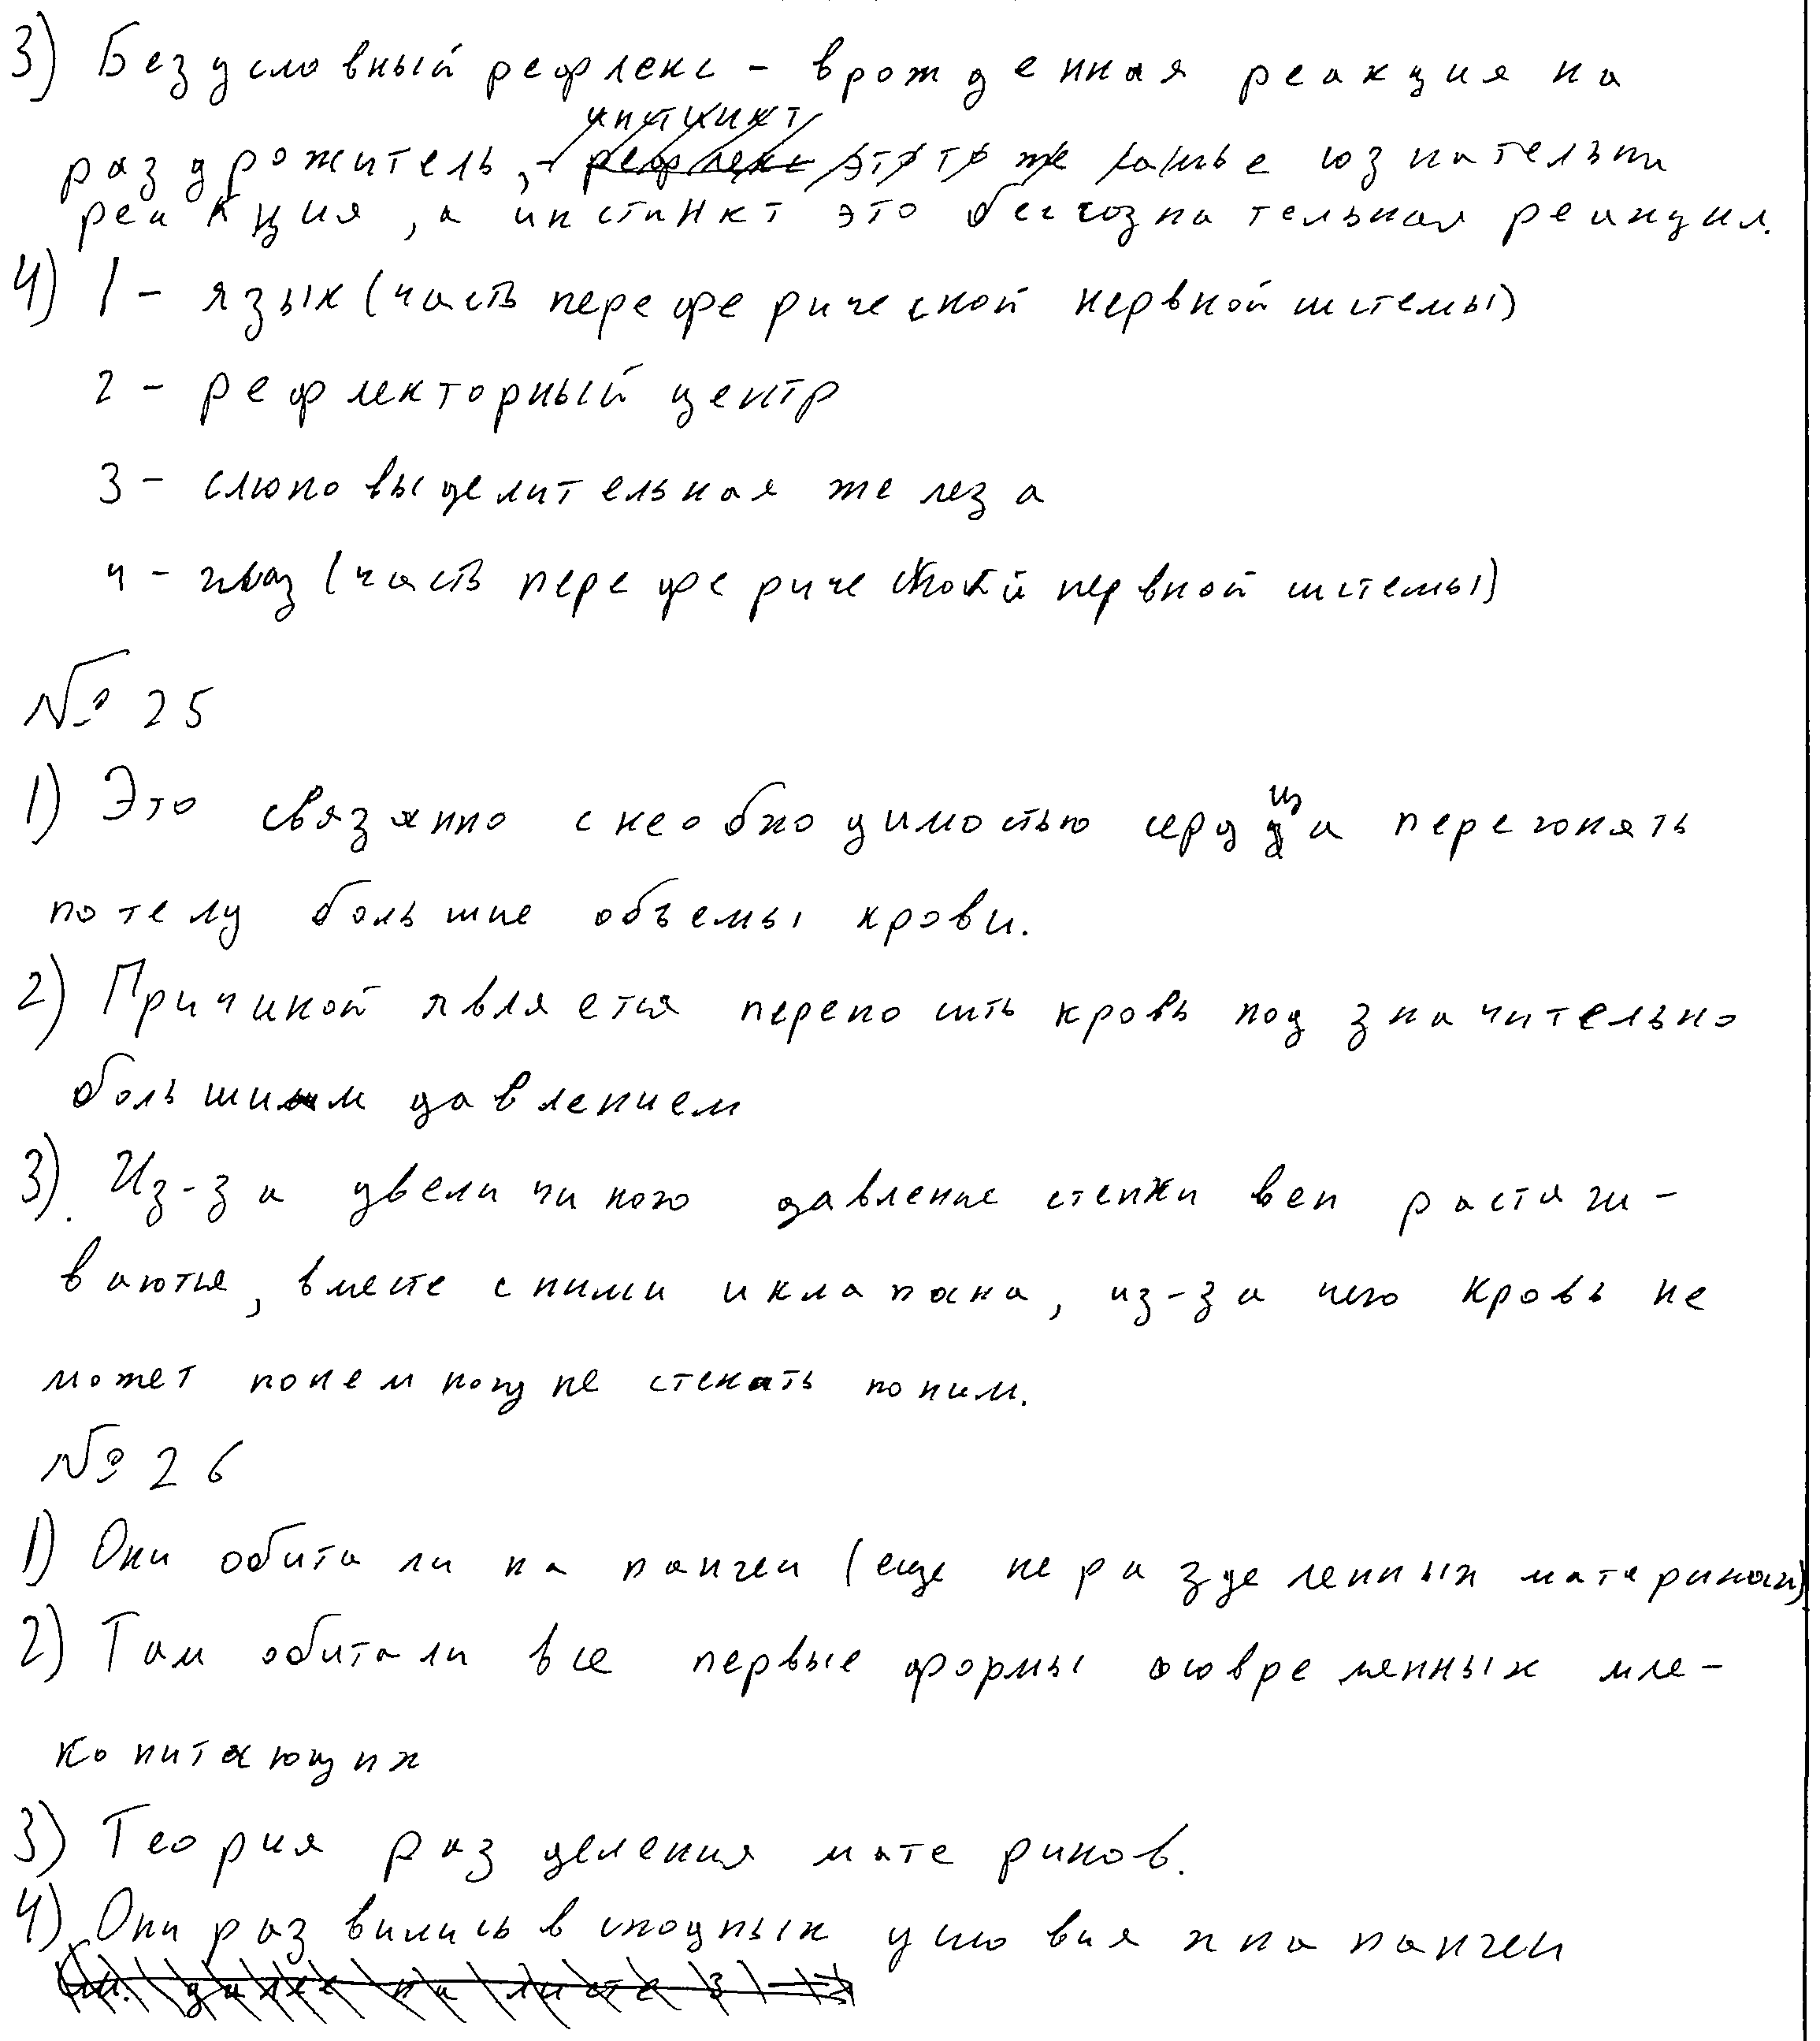 3) Безусловный рефлекс - врожденная реакция на
инстинкт
раздрожитель, - рефлекс это то же самое сознательная
реакция, а инстинкт это бессознательная реакция.
4) 1 - язык (часть переферической нервной системы)
2 - рефлекторный центр
3 - слюновыделительная железа
4 - глаз (часть переферической нервной системы)
№ 25
1) Это связанно с необходимостью сердца перегонять
по телу большие объемы крови.
2) Причиной является переносить кровь под значительно
большим давлением
3). Из-за увеличиного давление стенки вен растяги-
ваються, вместе с ними и клапана, из-за чего кровь не
может понемногу не стекать по ним.
№ 26
1) Они обитали на пангеи (еще не разделенных материках)
2) Там обитали все первые формы современных мле-
копитающих
3) Теория разделения материков.
4) Они развились в сходных условиях на пангеи